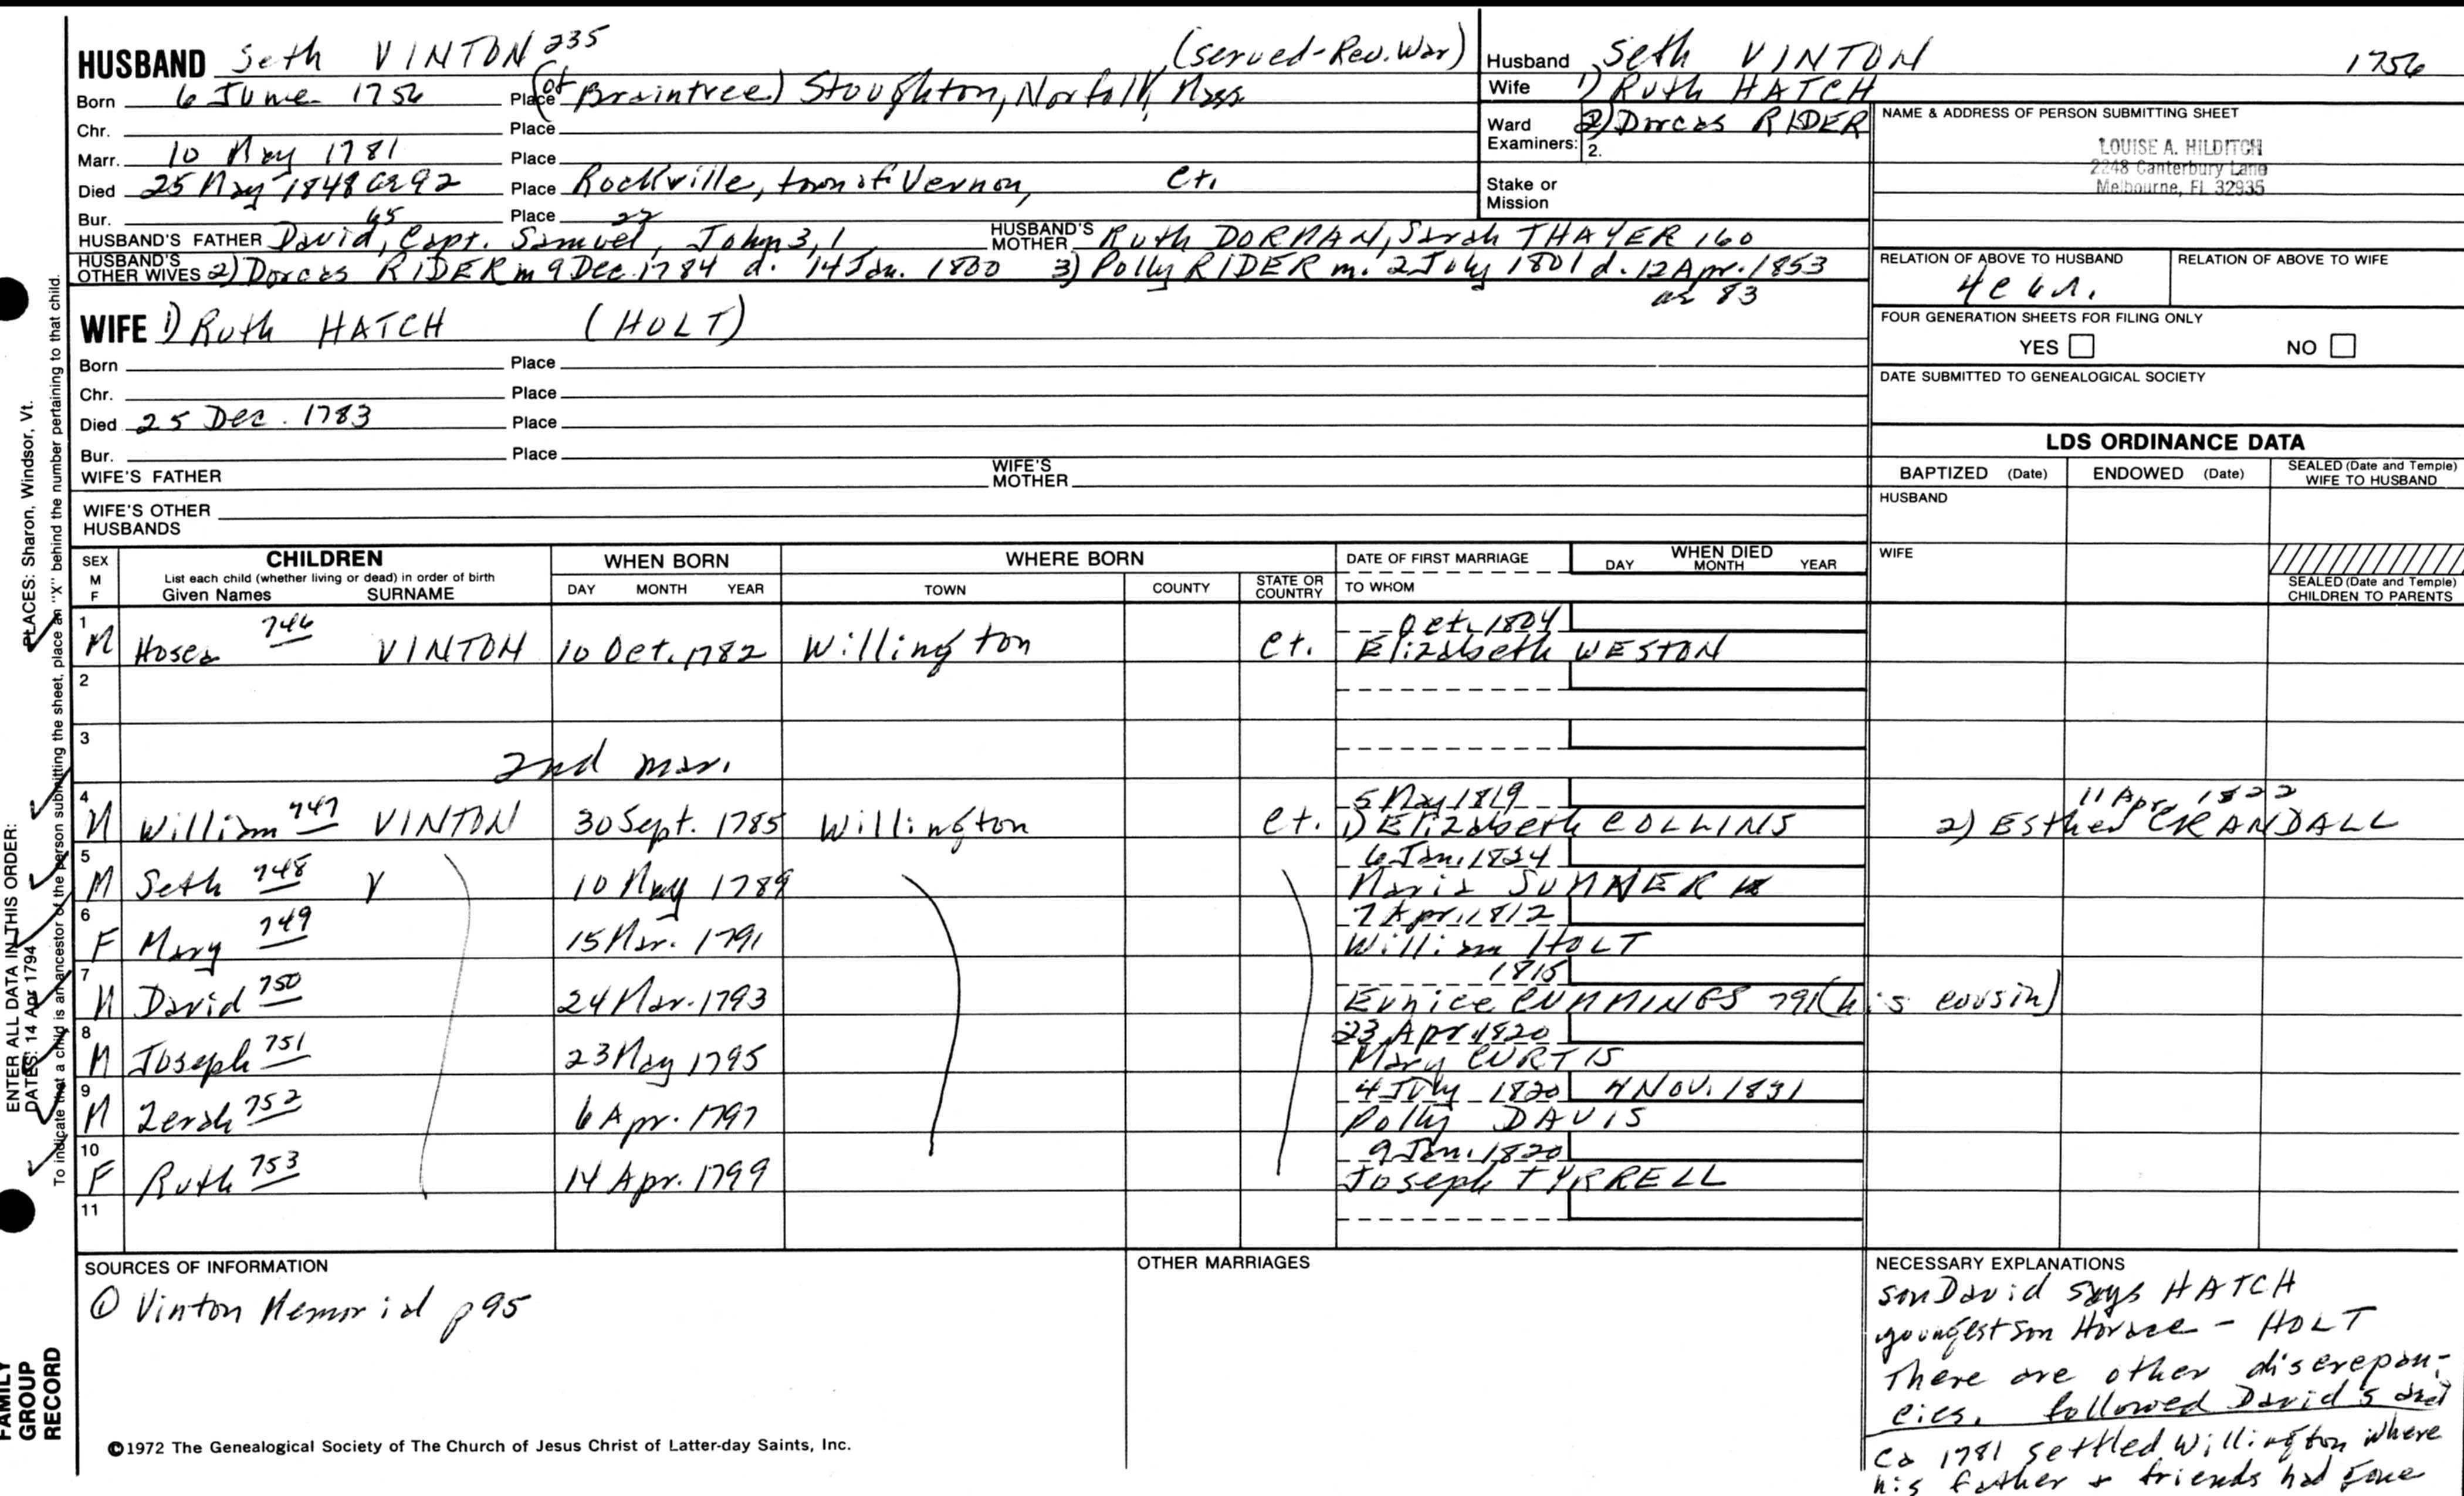 HUSBAND Seth VINTON 235 (served-Rev. War)
Born 6 June 1756 Place (of Braintree) Stoughton, Norfolk, Mass
Chr. Place
Marr. 10 May 1781 Place
Died 25 May 1848 ae 92 Place Rockville, town of Vernon, Ct.
Bur. Place
HUSBAND'S FATHER David 65, Capt. Samuel 22, John 3, 1 HUSBAND'S MOTHER Ruth DORMAN, Sarah THAYER 160
HUSBAND'S OTHER WIVES 2) Dorcas RIDER m 9 Dec. 1784 d. 14 Jan. 1800 3) Polly RIDER m. 2 July 1801 d. 12 Apr. 1853
ae 83
WIFE 1) Ruth HATCH (HOLT)
Born Place
Chr. Place
Died 25 Dec. 1783 Place
Bur. Place
WIFE'S FATHER WIFE'S MOTHER
WIFE'S OTHER HUSBANDS
Husband Seth VINTON 1756
Wife 1) Ruth HATCH
Ward 2) Dorcas RIDER
Examiners: 2.
Stake or Mission
NAME & ADDRESS OF PERSON SUBMITTING SHEET
LOUISE A. HILDITCH
2248 Canterbury Lane
Melbourne, FL 32935
RELATION OF ABOVE TO HUSBAND RELATION OF ABOVE TO WIFE
FOUR GENERATION SHEETS FOR FILING ONLY
YES NO
DATE SUBMITTED TO GENEALOGICAL SOCIETY
LDS ORDINANCE DATA
BAPTIZED (Date) ENDOWED (Date) SEALED (Date and Temple) WIFE TO HUSBAND
HUSBAND
WIFE
SEALED (Date and Temple) CHILDREN TO PARENTS
SEX M F CHILDREN WHEN BORN WHERE BORN DATE OF FIRST MARRIAGE WHEN DIED
List each child (whether living or dead) in order of birth
Given Names SURNAME DAY MONTH YEAR TOWN COUNTY STATE OR COUNTRY TO WHOM DAY MONTH YEAR
1 Oct. 1804
M Hosea 746 VINTON 10 Oct. 1782 Willington Ct. Elizabeth WESTON
2
3
2nd mar.
4 5 May 1819 11 Apr. 1822
M William 747 VINTON 30 Sept. 1785 Willington Ct. 1) Elizabeth COLLINS 2) Esther CRANDALL
5 6 Jan. 1824
M Seth 748 V 10 May 1789 Maria SUMNER
6 7 Apr. 1812
F Mary 749 15 Mar. 1791 William HOLT
7 1815
M David 750 24 Mar. 1793 Eunice CUMMINGS 791 (his cousin)
8 23 Apr 1820
M Joseph 751 23 May 1795 Mary CURTIS
9 4 July 1820 4 Nov. 1831
M Zerah 752 6 Apr. 1797 Polly DAVIS
10 9 Jan. 1820
F Ruth 753 14 Apr. 1799 Joseph TYRRELL
11
SOURCES OF INFORMATION
① Vinton Memorial p 95
OTHER MARRIAGES
NECESSARY EXPLANATIONS
son David says HATCH
youngest son Horace - HOLT
There are other discrepan-
cies. followed David's
Ca 1781 settled Willington where
his father & friends had gone
©1972 The Genealogical Society of The Church of Jesus Christ of Latter-day Saints, Inc.
ENTER ALL DATA IN THIS ORDER:
DATES: 14 Apr 1794
PLACES: Sharon, Windsor, Vt.
To indicate that a child is an ancestor of the person submitting the sheet, place an "X" behind the number pertaining to that child.
FAMILY
GROUP
RECORD